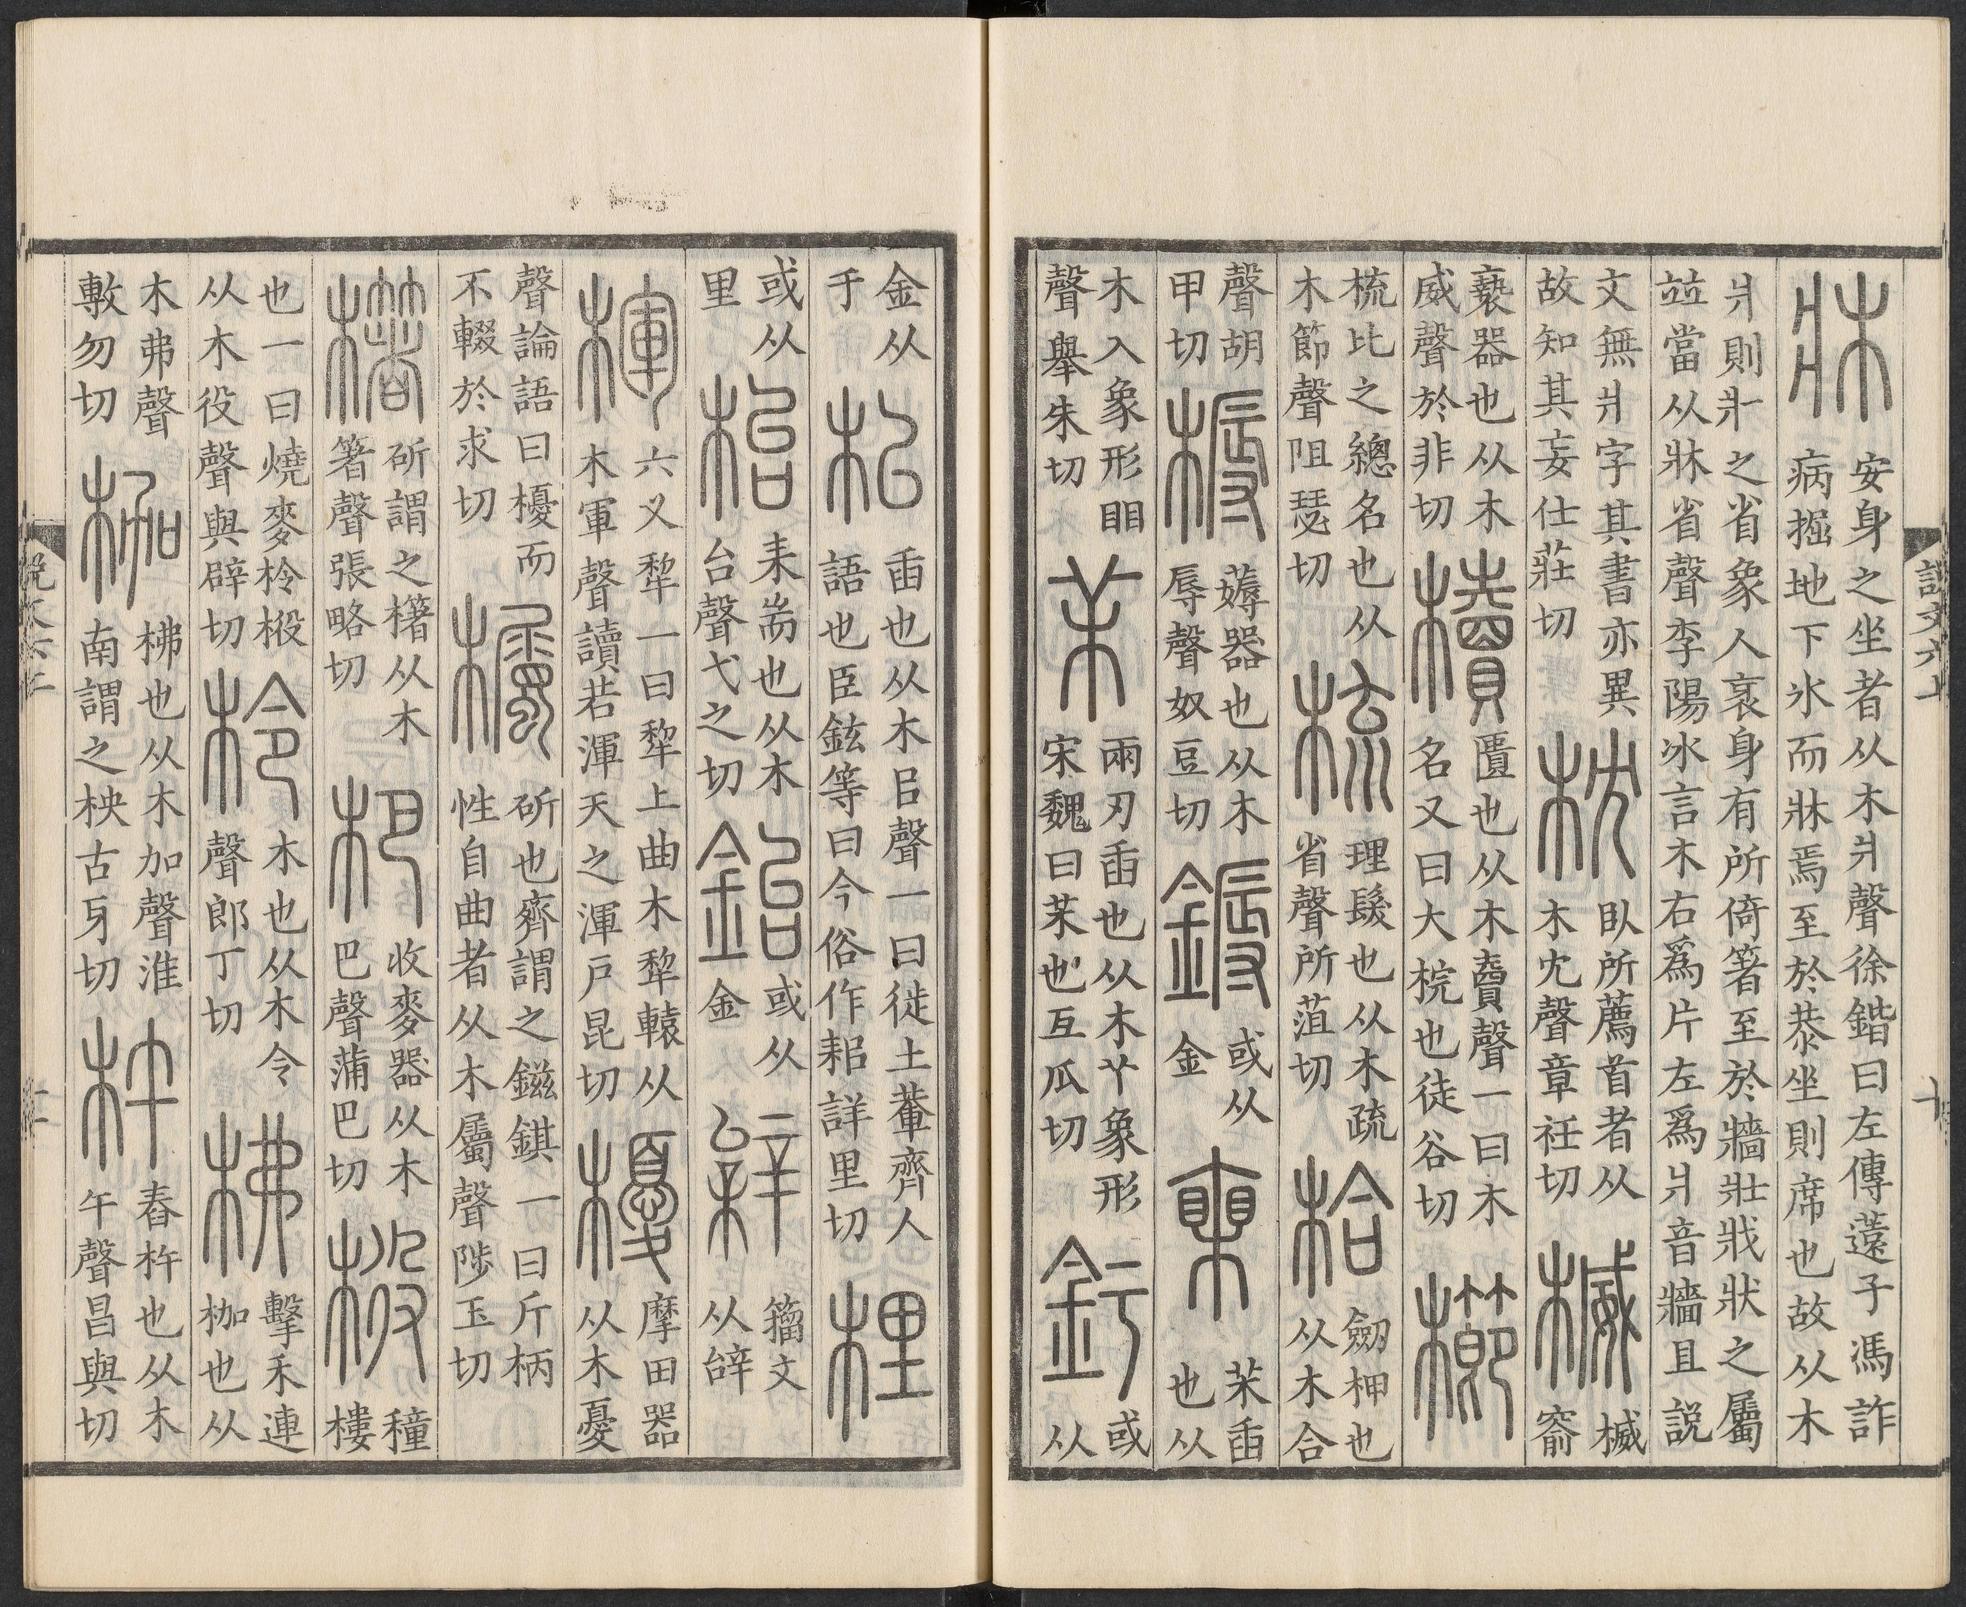 說文六上 十
牀 安身之坐者从木爿聲徐鍇曰左傳薳子馮詐病掘地下氷而牀焉至於恭坐則席也故从木
爿則爿之省象人裒身有所倚箸至於牆壯戕狀之屬竝當从牀省聲李陽冰言木右爲片左爲爿音牆且說
文無爿字其書亦異故知其妄仕莊切 枕 臥所薦首者从木冘聲章衽切 楲 楲窬
褻器也从木威聲於非切 櫝 匵也从木𧶠聲一曰木名又曰大梡也徒谷切 櫛
梳比之總名也从木節聲阻瑟切 梳 理髮也从木疏省聲所菹切 枱 劒柙也从木合
聲胡甲切 槈 薅器也从木辱聲奴豆切 鎒 或从金 苿臿也从
木入象形䀠聲舉朱切 苿 兩刃臿也从木丫象形宋魏曰苿也互瓜切 釫 或从
金从于 㭒 臿也从木㠯聲一曰徙土輂齊人語也臣鉉等曰今俗作耜詳里切 梩
或从里 枱 耒耑也从木台聲弋之切 鈶 或从金 𨐒 籒文从辝
楎 六叉犂一曰犂上曲木犂轅从木軍聲讀若渾天之渾戸昆切 櫌 摩田器从木憂
聲論語曰櫌而不輟於求切 欘 斫也齊謂之鎡錤一曰斤柄性自曲者从木屬聲陟玉切
櫡 斫謂之櫡从木箸聲張略切 杷 收麥器从木巴聲蒲巴切 穜樓
也一曰燒麥柃从木役聲與辟切 柃 木也从木令聲郎丁切 柫 擊禾連枷也从
木弗聲敷勿切 枷 柫也从木加聲淮南謂之柍古牙切 杵 舂杵也从木午聲昌與切
說文六上 十一